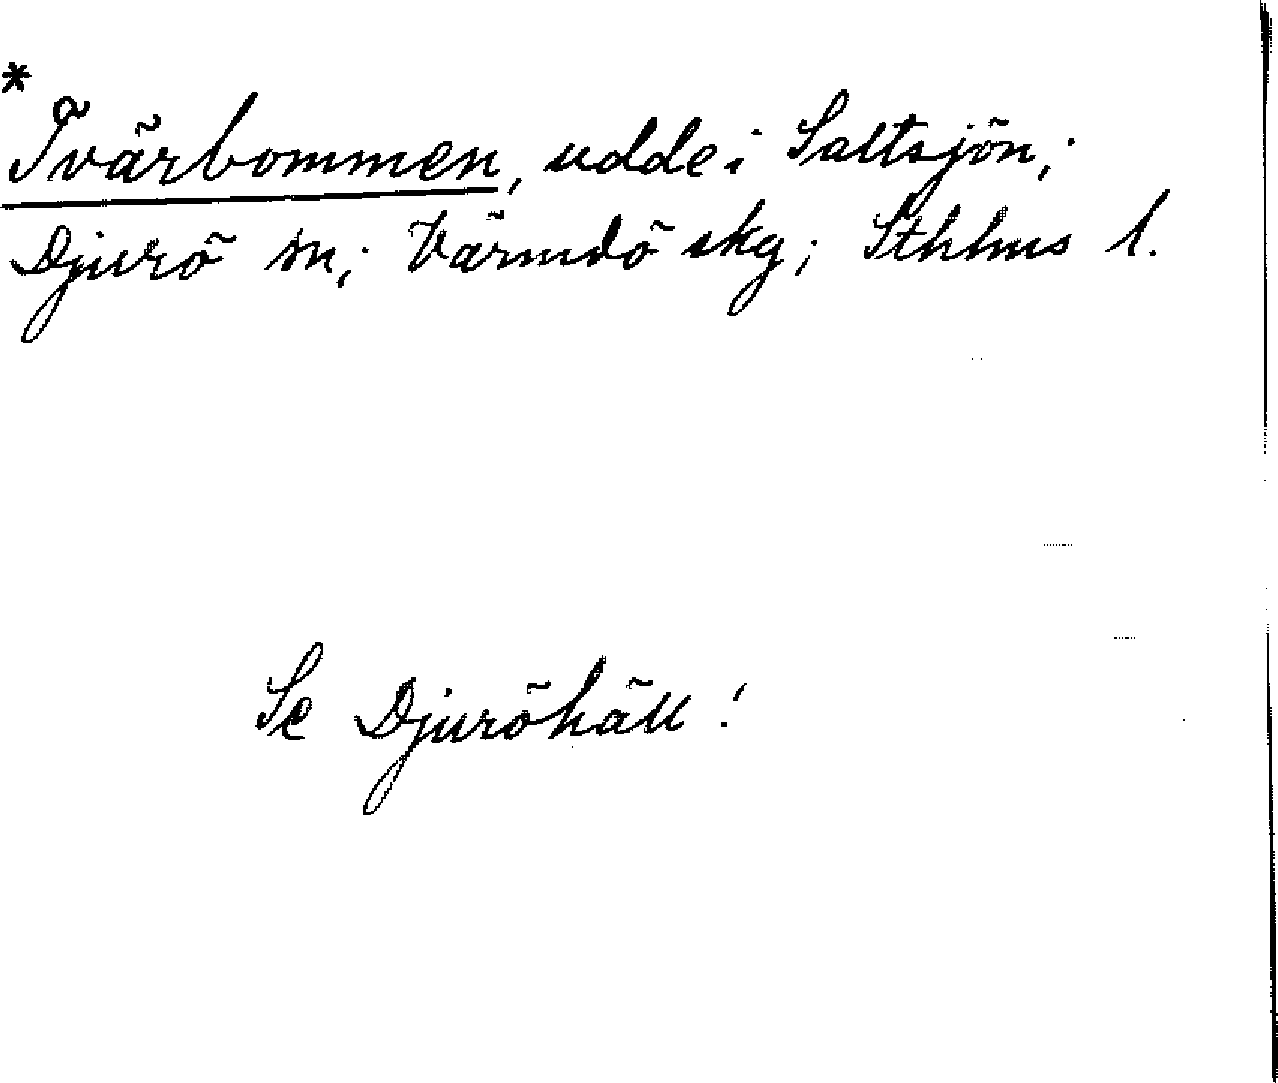 *
Tvärbommen, udde i Saltsjön;
Djurö sn; Värmdö skg; Sthlms l.
Se Djuröhäll!